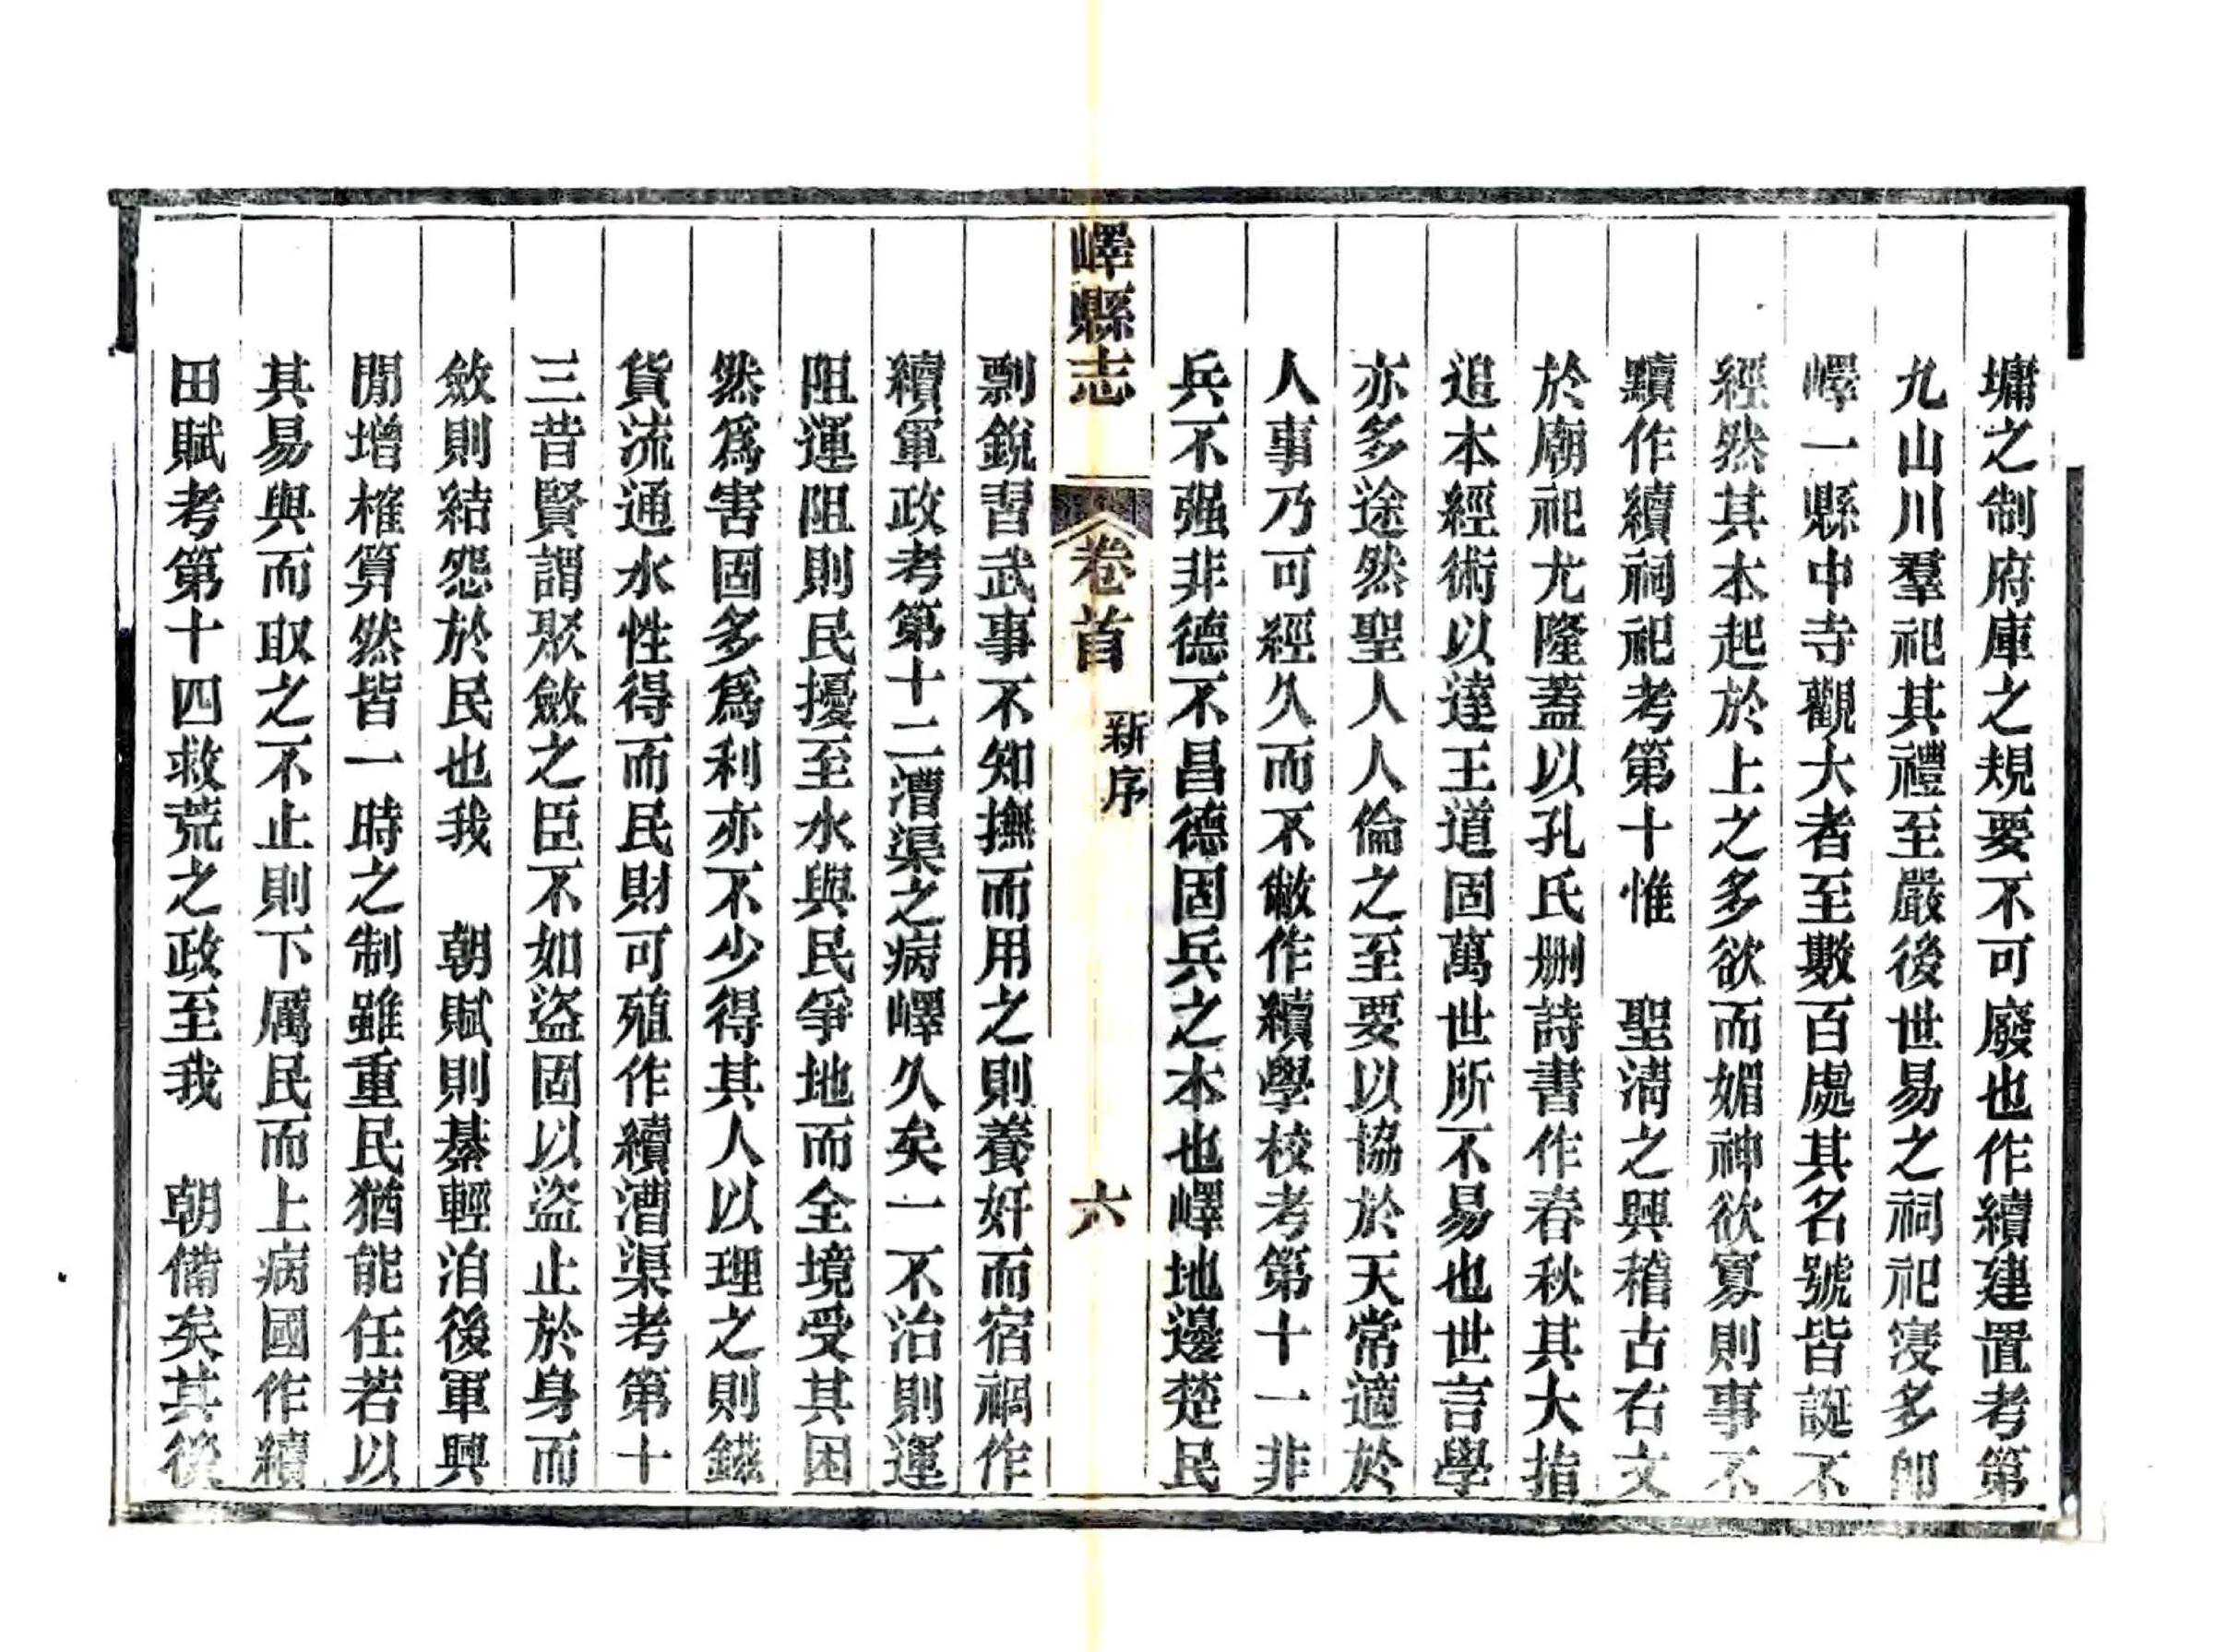 墉之制府庫之規要不可廢也作續建置考第
九山川羣祀其禮至嚴後世易之祠祀寖多卽
嶧一縣中寺觀大者至數百處其名號皆誕不
經然其本起於上之多欲而媚神欲寡則事不
黷作續祠祀考第十惟　聖淸之興稽古右文
於廟祀尤隆蓋以孔氏删詩書作春秋其大指
追本經術以達王道固萬世所不易也世言學
亦多途然聖人人倫之至要以協於天常適於
人事乃可經久而不敝作續學校考第十一非
兵不强非德不昌德固兵之本也嶧地邊楚民
嶧縣志　卷首　新序　六
剽銳習武事不知撫而用之則養奸而宿禍作
續軍政考第十二漕渠之病嶧久矣一不治則運
阻運阻則民擾至水與民爭地而全境受其困
然爲害固多爲利亦不少得其人以理之則鎡
貨流通水性得而民財可殖作續漕渠考第十
三昔賢謂聚斂之臣不如盜固以盜止於身而
斂則結怨於民也我　朝賦則綦輕洎後軍興
閒增榷算然皆一時之制雖重民猶能任若以
其易與而取之不止則下厲民而上病國作續
田賦考第十四救荒之政至我　朝備矣其後